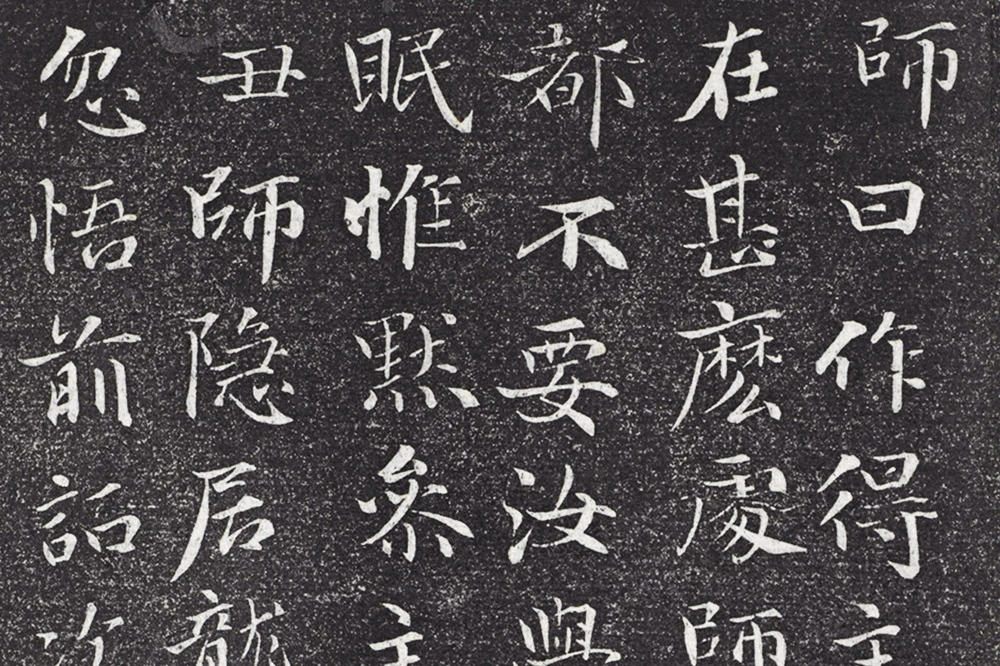 師曰作得主
在甚麽處師
都不要汝與
眠惟默叅主
丑師隱居龍
忽悟前話